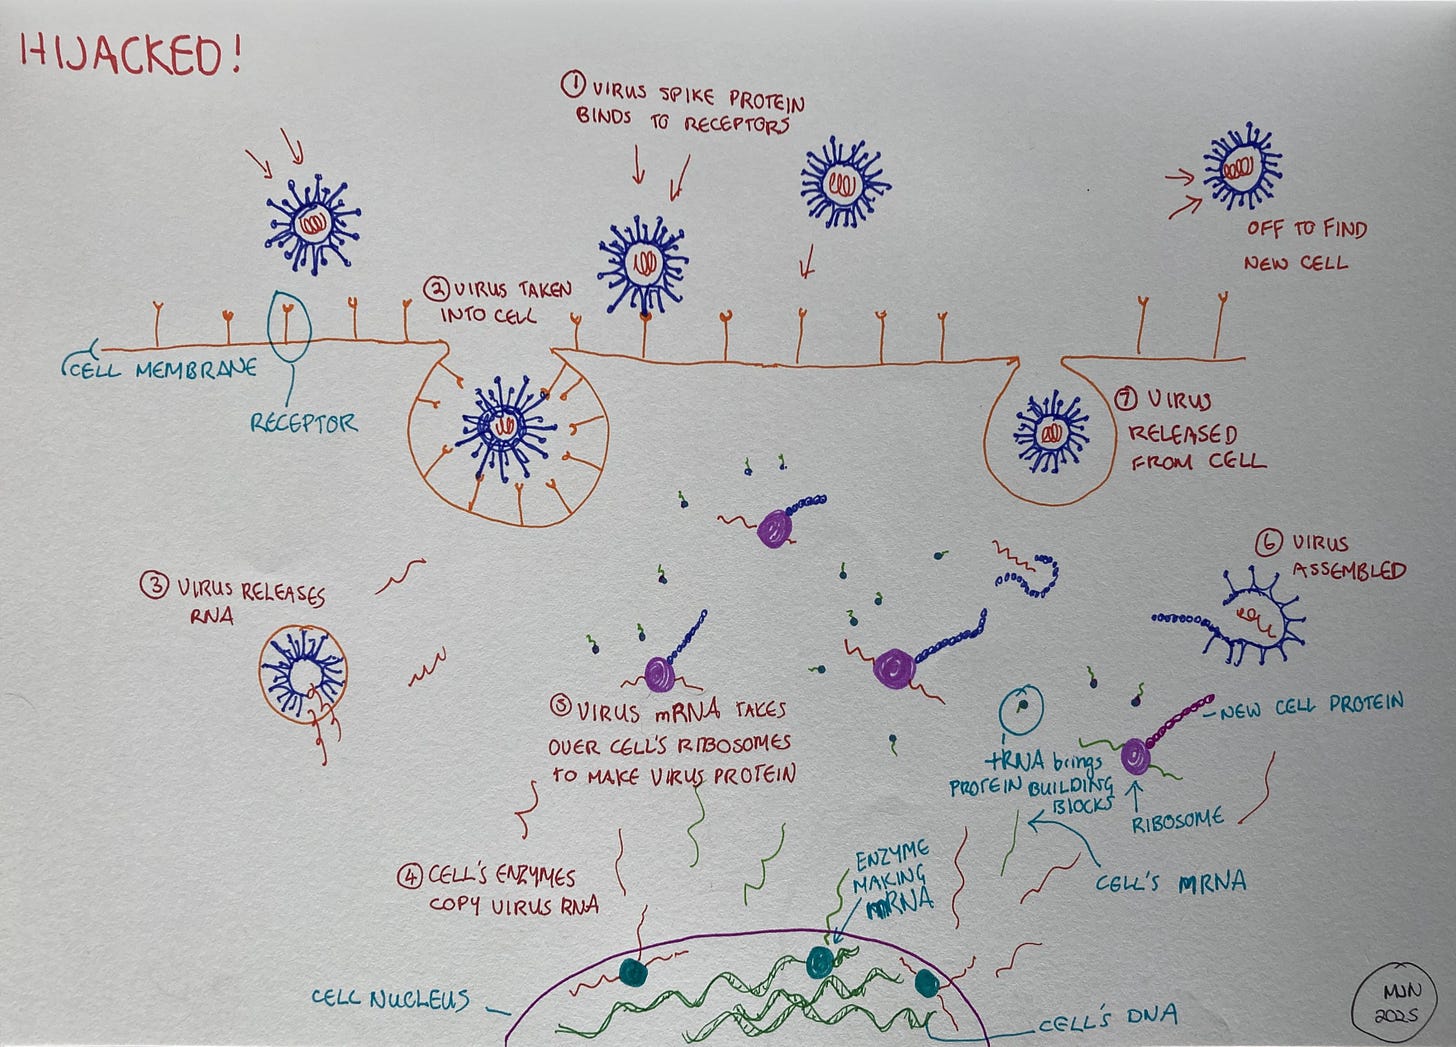 HIJACKED!
① VIRUS SPIKE PROTEIN
BINDS TO RECEPTORS
OFF TO FIND
NEW CELL
② VIRUS TAKEN
INTO CELL
CELL MEMBRANE
RECEPTOR
⑦ VIRUS
RELEASED
FROM CELL
③ VIRUS RELEASES
RNA
⑥ VIRUS
ASSEMBLED
⑤ VIRUS mRNA TAKES
OVER CELL'S RIBOSOMES
TO MAKE VIRUS PROTEIN
NEW CELL PROTEIN
tRNA brings
PROTEIN BUILDING
BLOCKS
RIBOSOME
④ CELL'S ENZYMES
COPY VIRUS RNA
ENZYME
MAKING
mRNA
CELL'S MRNA
CELL NUCLEUS
CELL'S DNA
MJN
2025